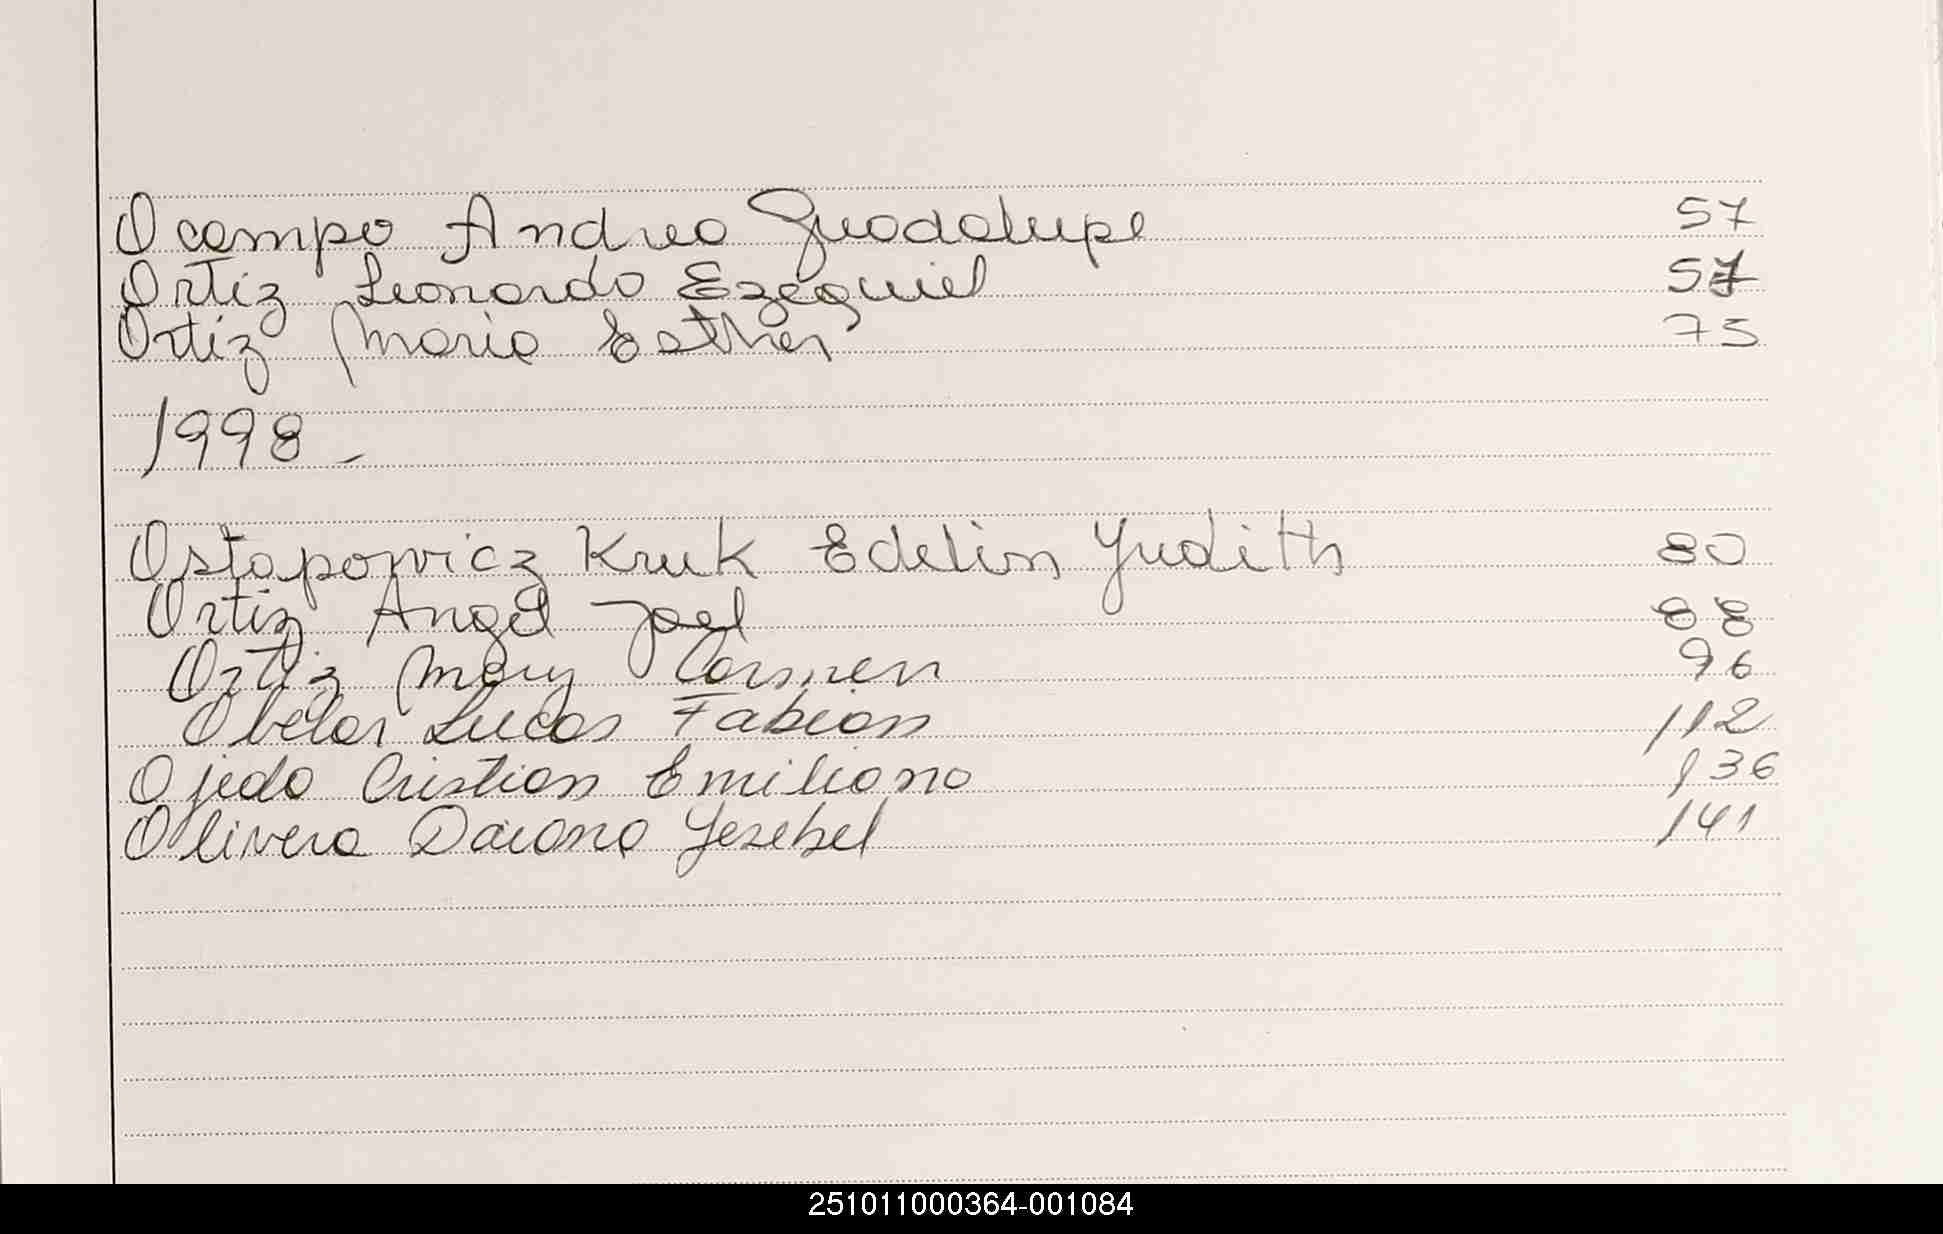 Ocampo Andrea Guadalupe 57
Ortiz Leonardo Ezequiel 57
Ortiz Maria Esther 75
1998 -
Ostapowicz Kruk Edelin Yudith 80
Ortiz Angel Joel 88
Ortiz Mary Carmen 96
Obelar Lucas Fabian 112
Ojeda Cristian Emiliano 136
Olivera Daiana Yesebel 141
251011000364-001084